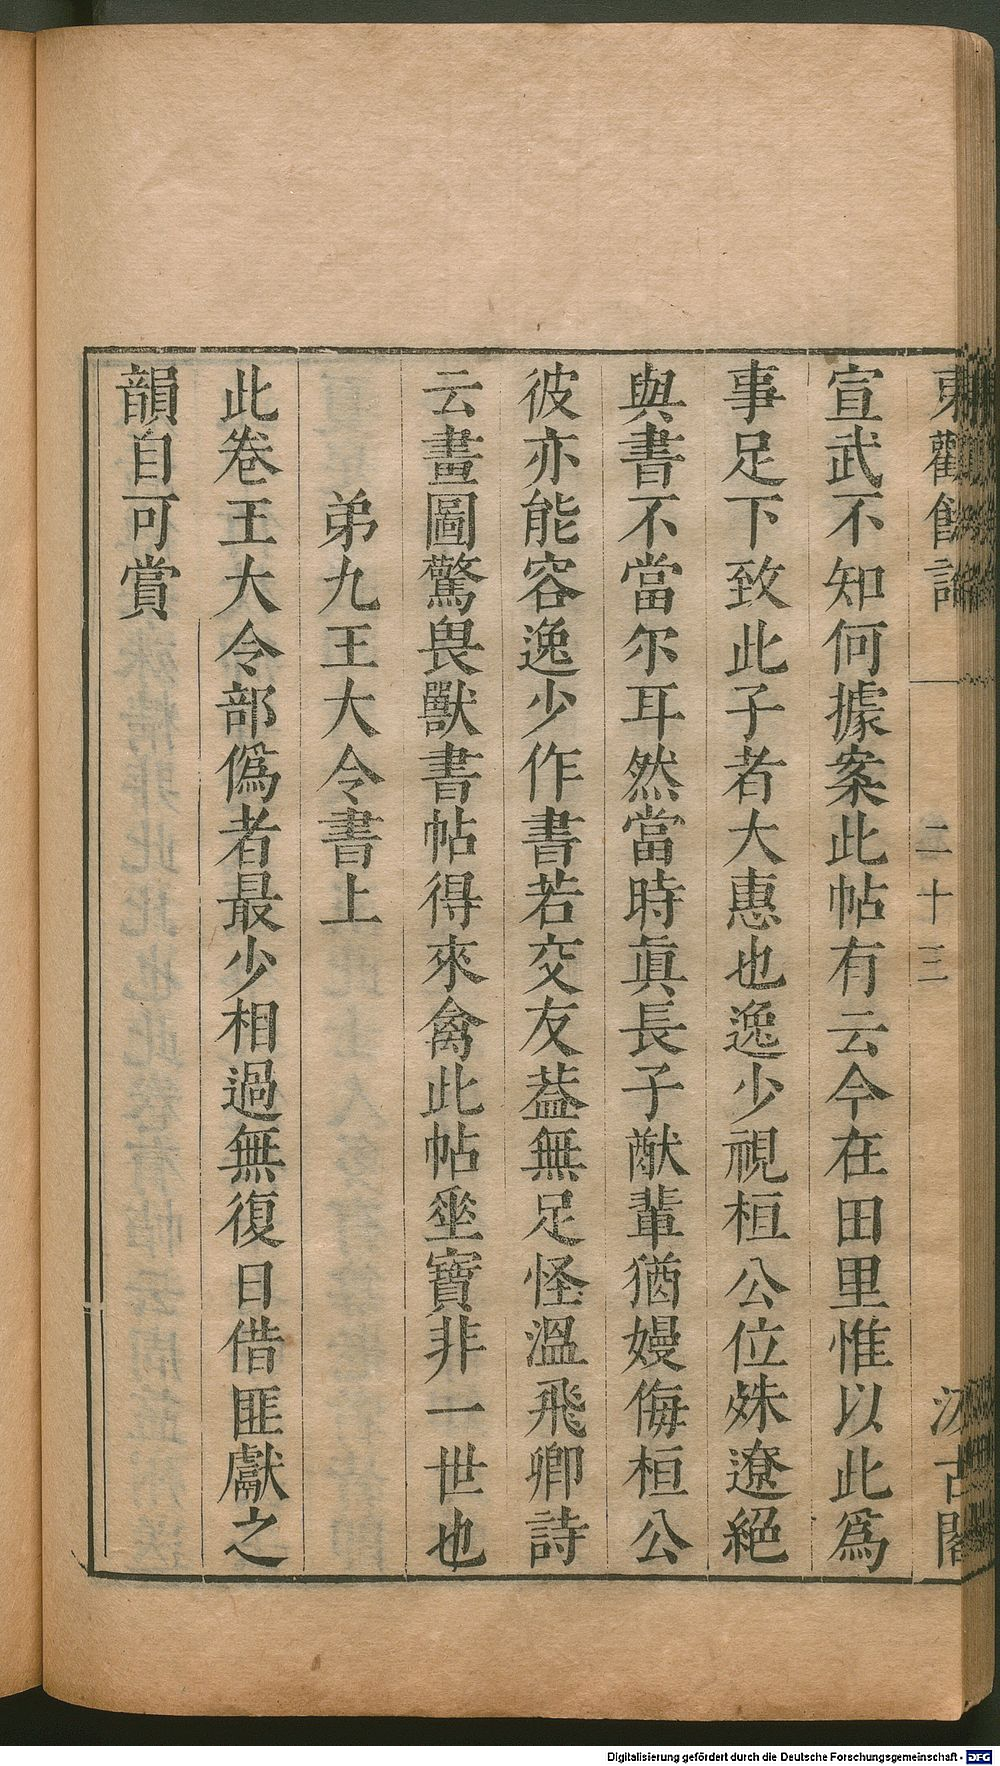 東觀餘論
二十三
汲古閣
宣武不知何據案此帖有云今在田里惟以此爲
事足下致此子者大惠也逸少視桓公位殊遼絕
與書不當尔耳然當時眞長子猷輩猶嫚侮桓公
彼亦能容逸少作書若交友葢無足怪溫飛卿詩
云畫圖驚畏獸書帖得來禽此帖㘴寶非一世也
弟九王大令書上
此卷王大令部僞者最少相過無復日借匪獻之
韻自可賞
Digitalisierung gefördert durch die Deutsche Forschungsgemeinschaft - DFG